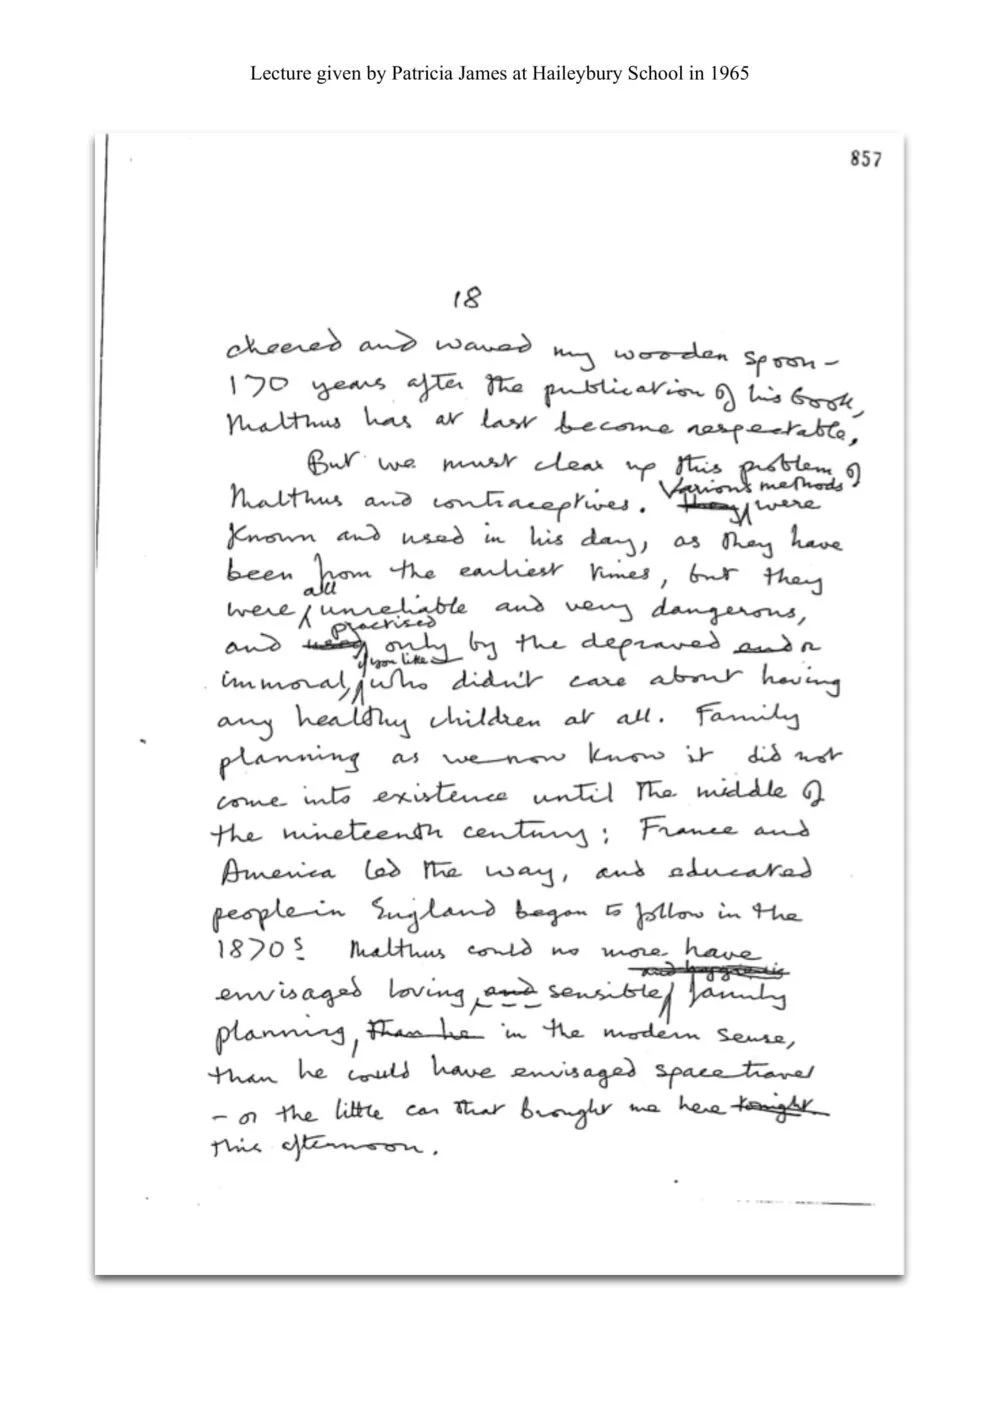 Lecture given by Patricia James at Haileybury School in 1965
857
18
cheered and waved my wooden spoon –
170 years after the publication of his book,
Malthus has at last become respectable.
But we must clear up this problem of
Various methods
Malthus and contraceptives. they were
known and used in his day, as they have
been from the earliest times, but they
all
were unreliable and very dangerous,
practised
and used only by the depraved and or
if you like –
immoral, who didn't care about having
any healthy children at all. Family
planning as we now know it did not
come into existence until the middle of
the nineteenth century; France and
America led the way, and educated
people in England began to follow in the
1870s. Malthus could no more have
and hygienic
envisaged loving, and sensible, family
planning, than he in the modern sense,
than he could have envisaged space travel
– or the little car that brought me here tonight
this afternoon.